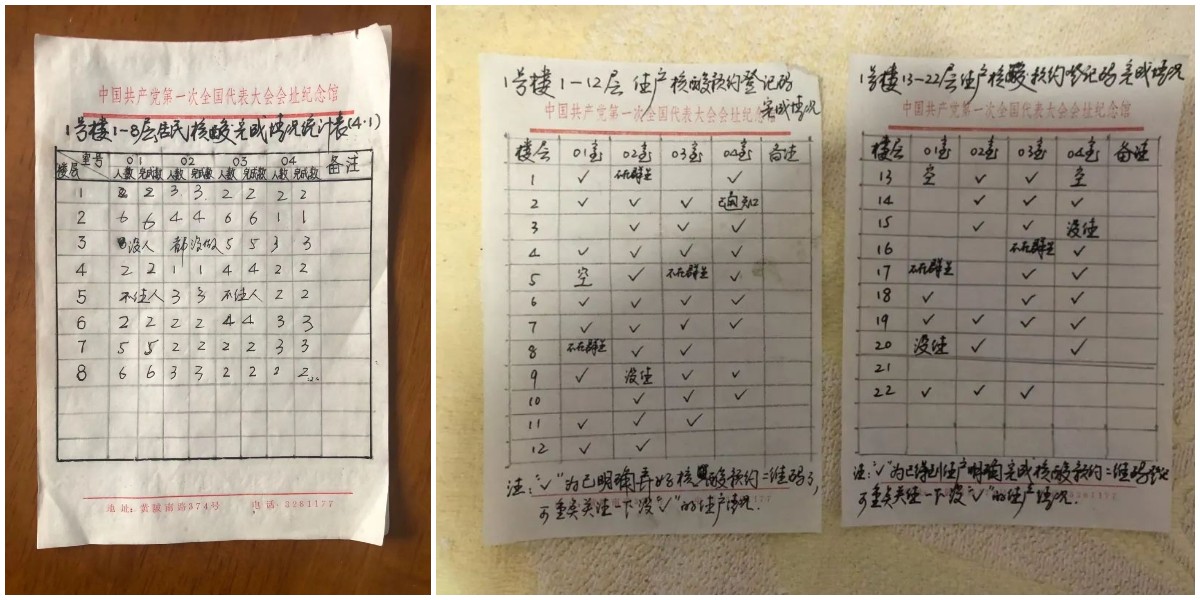 中国共产党第一次全国代表大会会址纪念馆
1号楼1-8层居民核酸完成情况统计表(4.1)
室号 01 02 03 04 备注
楼层 人数 完成数 人数 完成数 人数 完成数 人数 完成数
1 2 2 3 3 2 2 2 2
2 6 6 4 4 6 6 1 1
3 没人 都没做 5 5 3 3
4 2 2 1 1 4 4 2 2
5 不住人 3 3 不住人 2 2
6 2 2 2 2 4 4 3 3
7 5 5 2 2 2 2 3 3
8 6 6 3 3 2 2 2 2
地址:黄陂南路374号 电话:3261177
1号楼1-12层住户核酸预约登记码
完成情况
中国共产党第一次全国代表大会会址纪念馆
楼层 01室 02室 03室 04室 备注
1 ✓ 不在群里 ✓
2 ✓ ✓ ✓
3 ✓ ✓ ✓
4 ✓ ✓ ✓ ✓
5 空 ✓ 不在群里 ✓
6 ✓ ✓ ✓ ✓
7 ✓ ✓ ✓ ✓
8 不在群里 ✓ ✓
9 ✓ 没住 ✓ ✓
10 ✓ ✓ ✓
11 ✓ ✓ ✓
12 ✓ ✓
注:"✓"为已明确弄好核酸预约二维码了,
可重点关注一下没"✓"的住户情况.
1号楼13-22层住户核酸预约登记码完成情况
中国共产党第一次全国代表大会会址纪念馆
楼层 01室 02室 03室 04室 备注
13 空 ✓ ✓ 空
14 ✓ ✓ ✓
15 ✓ ✓ 没住
16 不在群里 ✓
17 不在群里 ✓ ✓
18 ✓ ✓ ✓
19 ✓ ✓ ✓ ✓
20 没住 ✓ ✓
21
22 ✓ ✓ ✓
注:"✓"为已得到住户明确完成核酸预约二维码登记
可重点关注一下没"✓"的住户情况.